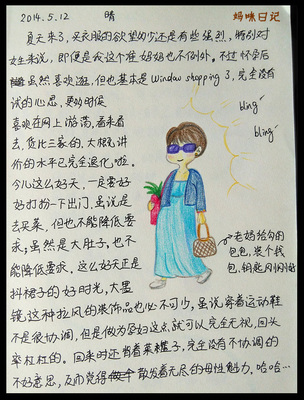 2014.5.12 晴 妈咪日记
夏天来了，买衣服的欲望如今还是有些强烈，特别对
女生来说，即便是我这个准妈妈也不例外。不过怀孕后
虽然喜欢逛，但也基本是Window shopping了，完全没有
试的心思，更多时候
喜欢在网上游荡，看来看
去，货比三家的，大概是讲
价的水平已完全退化啦。
今儿这么好天，一定要好
好打扮一下出门，虽说是
去买菜，但也不能降低要
求；虽然是大肚子，也不
能降低要求，这么好天正是
抖裙子的好时光，大墨
镜这种拉风的装饰品也必不可少，虽说穿着运动鞋
不是很协调，但是做为孕妇这点就可以完全无视，回头
率杠杠的。回来时还背着菜篮子，完全没有不协调的
不好意思，反而觉得散发着无尽的母性魅力，哈哈…
bling
bling
老妈给勾的
包包，装个钱
包、钥匙风情的